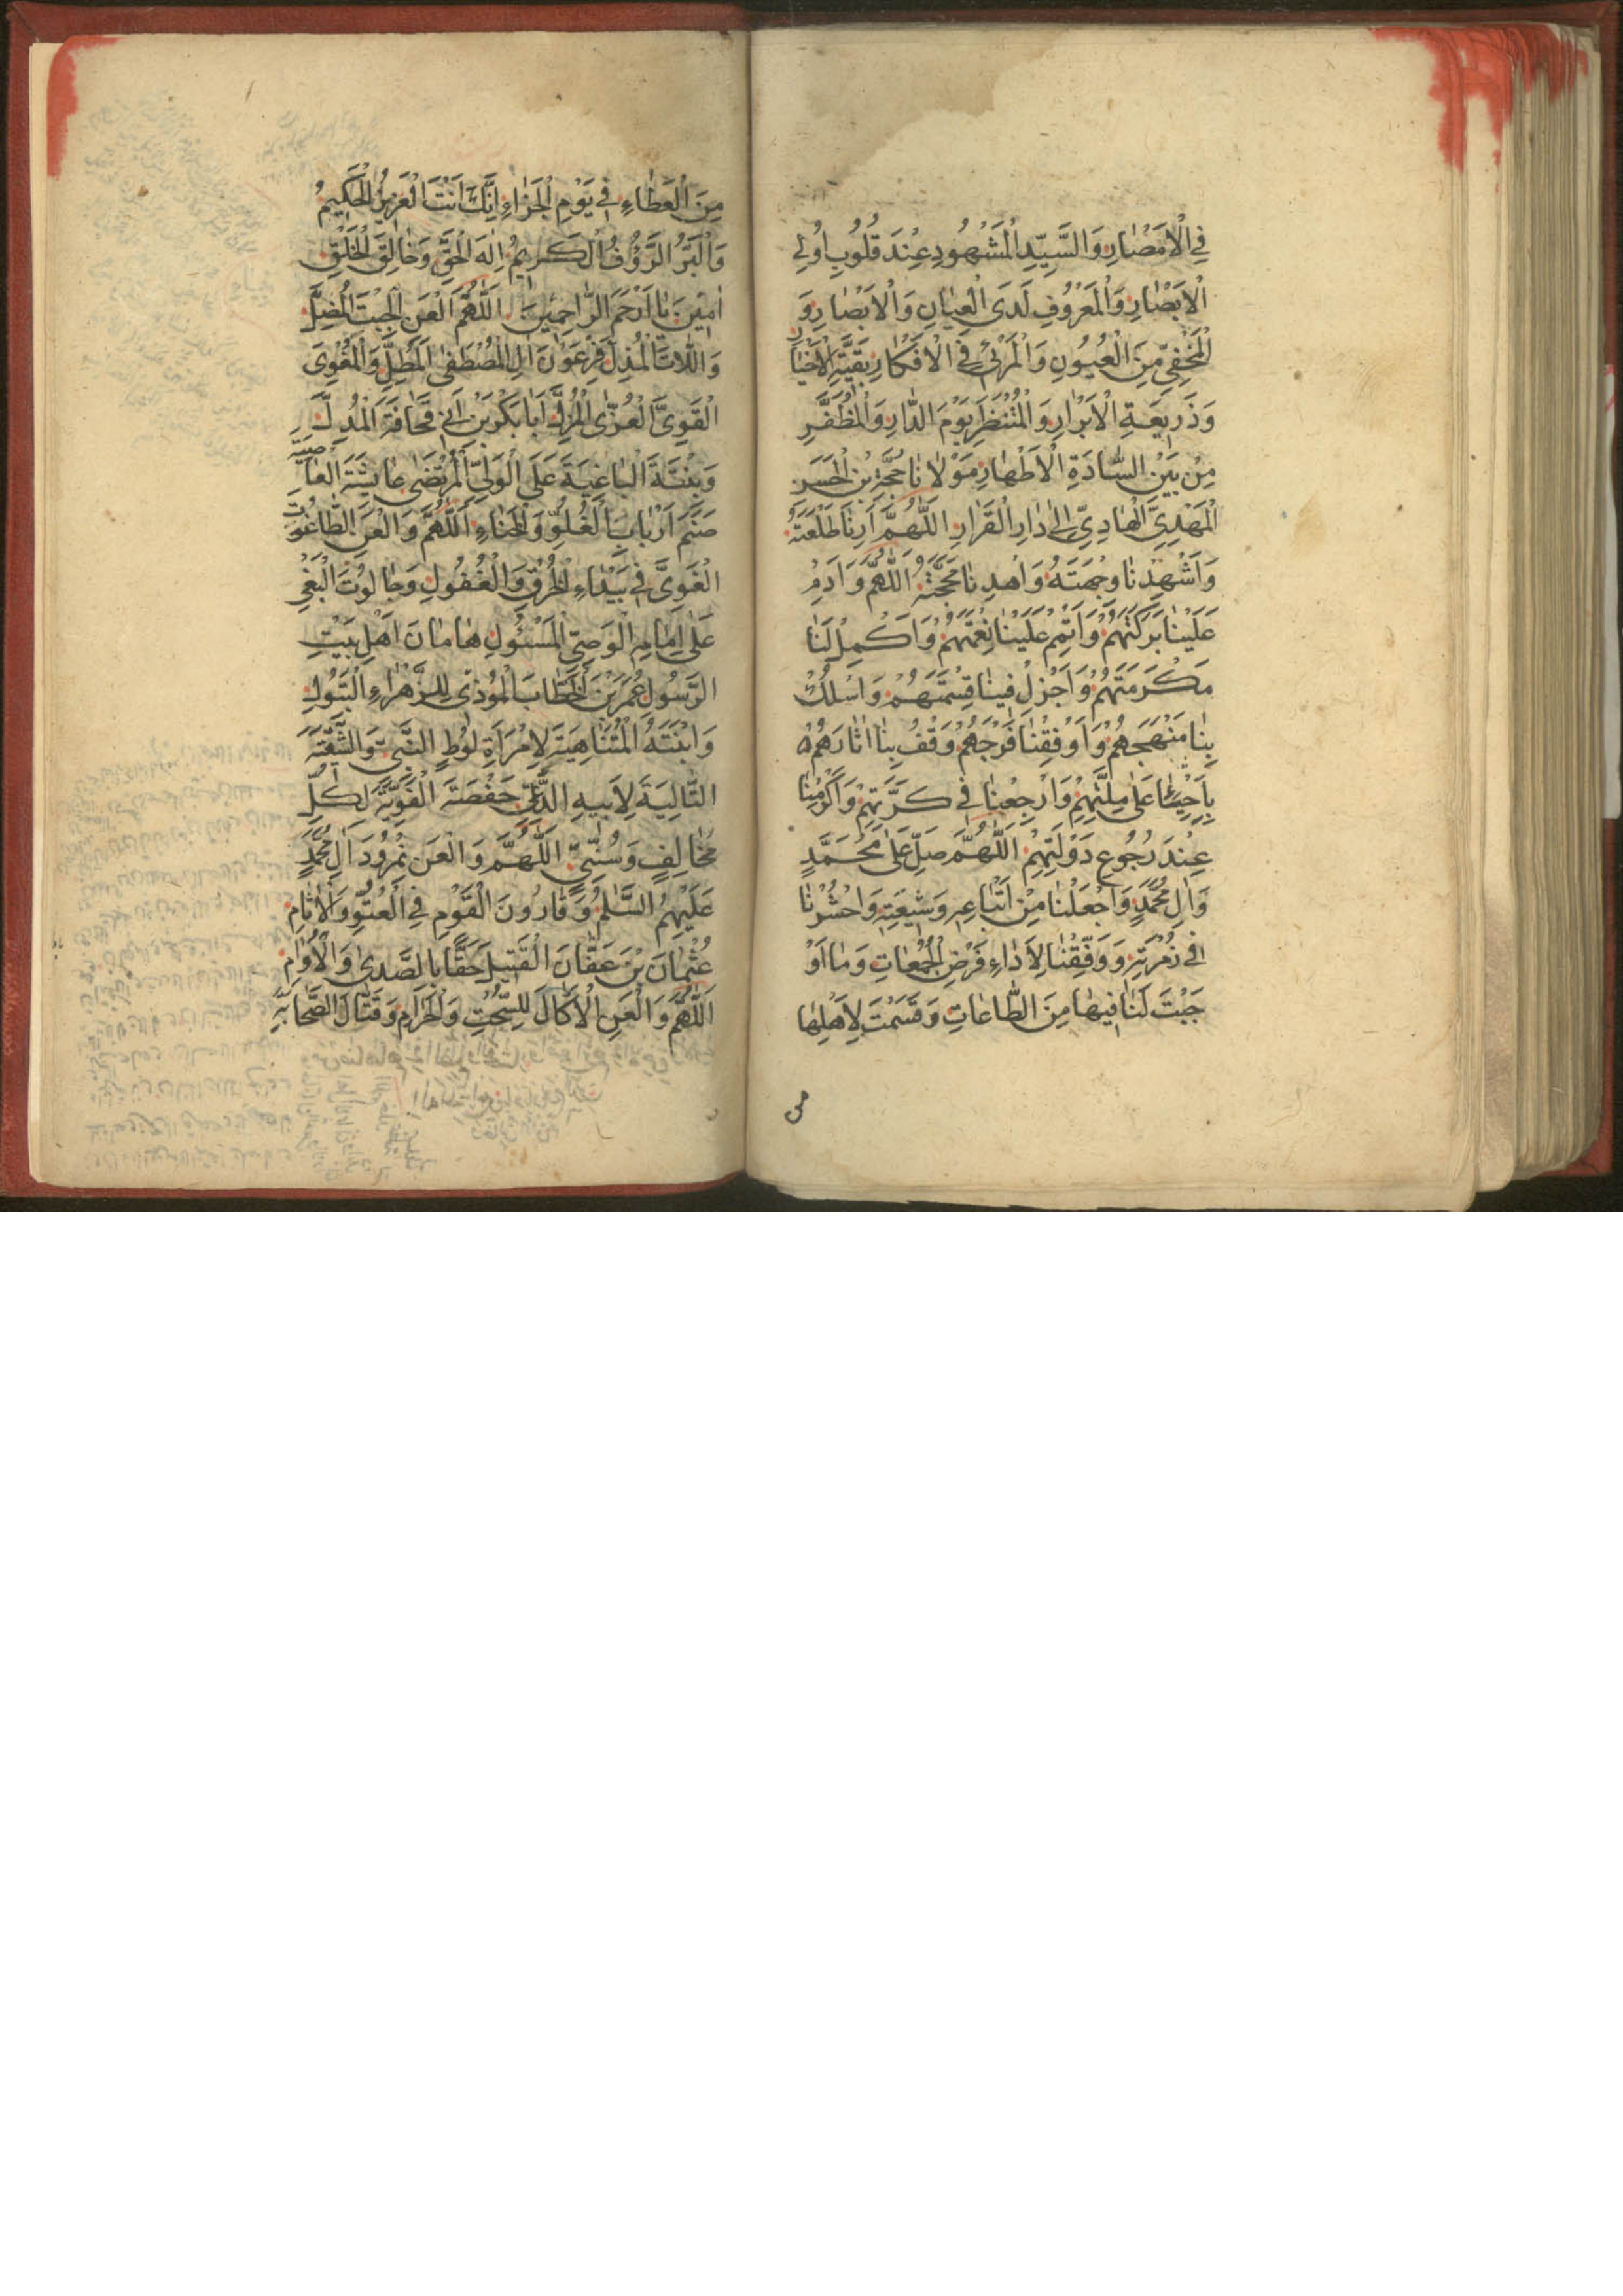 فِي الْاَمْصَارِ وَالسَّيِّدِ الْمَشْهُودِ عِنْدَ قُلُوبِ اُولِي
الْاَبْصَارِ وَالْمَعْرُوفِ لَدَى الْعِيَانِ وَالْاَبْصَارِ وَ
الْمَخْفِيِّ مِنَ الْعُيُونِ وَالْمَرْئِيِّ فِي الْاَفْكَارِ بَقِيَّةِ الْاَخْيَارِ
وَذَرِيعَةِ الْاَبْرَارِ وَالْمُنْتَظَرِ يَوْمَ الدَّارِ وَالْمُظَفَّرِ
مِنْ بَيْنِ السَّادَةِ الْاَطْهَارِ مَوْلَانَا حُجَّةِ بْنِ الْحَسَنِ
الْمَهْدِيِّ الْهَادِيِّ اِلَى دَارِ الْقَرَارِ اللّٰهُمَّ اَرِنَا طَلْعَتَهُ
وَاَشْهِدْنَا وِجْهَتَهُ وَاهْدِنَا مَحَجَّتَهُ اَللّٰهُمَّ وَاَدِمْ
عَلَيْنَا بَرَكَتَهُمْ وَاَتِمْ عَلَيْنَا نِعْمَتَهُمْ وَاَكْمِلْ لَنَا
مَكْرَمَتَهُمْ وَاَجْزِلْ فِينَا قِسْمَتَهُمْ وَاسْلُكْ
بِنَا مَنْهَجَهُمْ وَاَوْفِقْنَا فَرَجَهُمْ وَقِفْ بِنَا اٰثَارَهُمْ
عَلَى مِلَّتِهِمْ وَارْجِعْنَا فِي كَرَّتِهِمْ وَاَكْرِمْنَا
عِنْدَ رُجُوعِ دَوْلَتِهِمْ اَللّٰهُمَّ صَلِّ عَلَى مُحَمَّدٍ
وَاٰلِ مُحَمَّدٍ وَاجْعَلْنَا مِنْ اَتْبَاعِهِ وَشِيعَتِهِ وَاحْشُرْنَا
فِي زُمْرَتِهِ وَوَفِّقْنَا لِاَدَاءِ فَرْضِ الْجُمُعَاتِ وَمَا اَوْ
جَبْتَ لَنَا فِيهَا مِنَ الطَّاعَاتِ وَقَسَمْتَ لِاَهْلِهَا
من
مِنَ الْعَطَاءِ فِي يَوْمِ الْجَزَاءِ اِنَّكَ اَنْتَ الْعَزِيزُ الْحَكِيمُ
وَالْبَرُّ الرَّؤُفُ الْكَرِيمُ اِلٰهَ الْحَقِّ وَخَالِقَ الْخَلْقِ
اٰمِينَ يَا اَرْحَمَ الرَّاحِمِينَ اَللّٰهُمَّ الْعَنِ الْجِبْتَ الْمُضِلَّ
وَاللَّاتَ الْمُذِلَّ فِرْعَوْنَ اٰلِ الْمُصْطَفٰى وَالْمُغْوِىَ
الْقَوِىَّ الْعُزَّى الْمُزِلَّ اَبَا بَكْرِ بْنَ اَبِي قُحَافَةَ الْمُدِلَّ
وَبِنْتَهُ الْبَاغِيَةَ عَلَى الْوَلِيِّ الْمُرْتَضٰى عَايِشَةَ الْعَاصِيَةِ
صَنَمَ اَرْبَابِ الْغُلُوِّ وَالْخَنَاءِ اَللّٰهُمَّ وَالْعَنِ الطَّاغُوتَ
الْغَوِىَّ فِي بَيْدَاءِ الْخُرْقِ وَالْغُفُولِ وَجَالُوتَ الْبَغْيِ
عَلَى اِمَامِهِ الْوَصِيِّ الْمَسْئُولِ هَامَانَ اَهْلِ بَيْتِ
الرَّسُولِ عُمَرَ بْنَ الْخَطَّابَ الْمُوذِىَ لِلزَّهْرَاءِ الْبَتُولِ
وَابْنَتَهُ الْمُتَنَاهِيَةَ لِامْرَاَةِ لُوطٍ النَّبِيِّ
التَّالِيَةَ لِاَبِيهِ حَفْصَةَ الْغَوِيَّةَ لِكُلِّ
مُخَالِفٍ وَسُنِّيٍّ اَللّٰهُمَّ وَالْعَنْ نُمْرُودَ اٰلِ مُحَمَّدٍ
عَلَيْهِمُ السَّلٰمُ وَقَارُونَ الْقَوْمِ فِي الْعُتُوِّ وَالْاٰثَامِ
عُثْمَانَ بْنَ عَفَّانَ الْقَتِيلَ حَقًّا بِالصَّدٰى وَالْاُوَامِ
اَللّٰهُمَّ وَالْعَنِ الْاَكَّالَ لِلسُّحْتِ وَالْحَرَامِ وَقَتَّالَ الصَّحَابَةِ